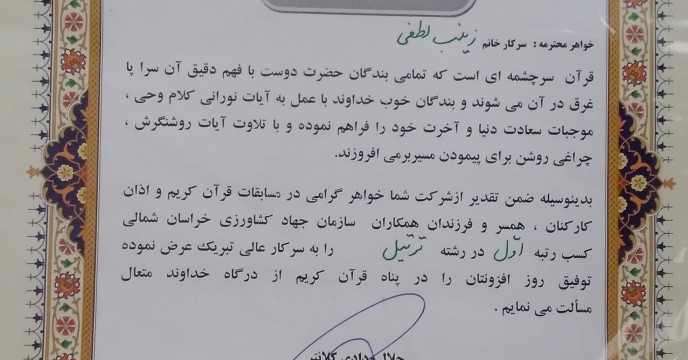 خواهر محترمه : سرکار خانم زینب لطفی
قرآن سرچشمه ای است که تمامی بندگان حضرت دوست با فهم دقیق آن سرا پا
غرق در آن می شوند و بندگان خوب خداوند با عمل به آیات نورانی کلام وحی ،
موجبات سعادت دنیا و آخرت خود را فراهم نموده و با تلاوت آیات روشنگرش ،
چراغی روشن برای پیمودن مسیربرمی افروزند.
بدینوسیله ضمن تقدیر ازشرکت شما خواهر گرامی در مسابقات قرآن کریم و اذان
کارکنان ، همسر و فرزندان همکاران سازمان جهاد کشاورزی خراسان شمالی
کسب رتبه اول در رشته ترتیل را به سرکار عالی تبریک عرض نموده
توفیق روز افزونتان را در پناه قرآن کریم از درگاه خداوند متعال
مسألت می نمایم .